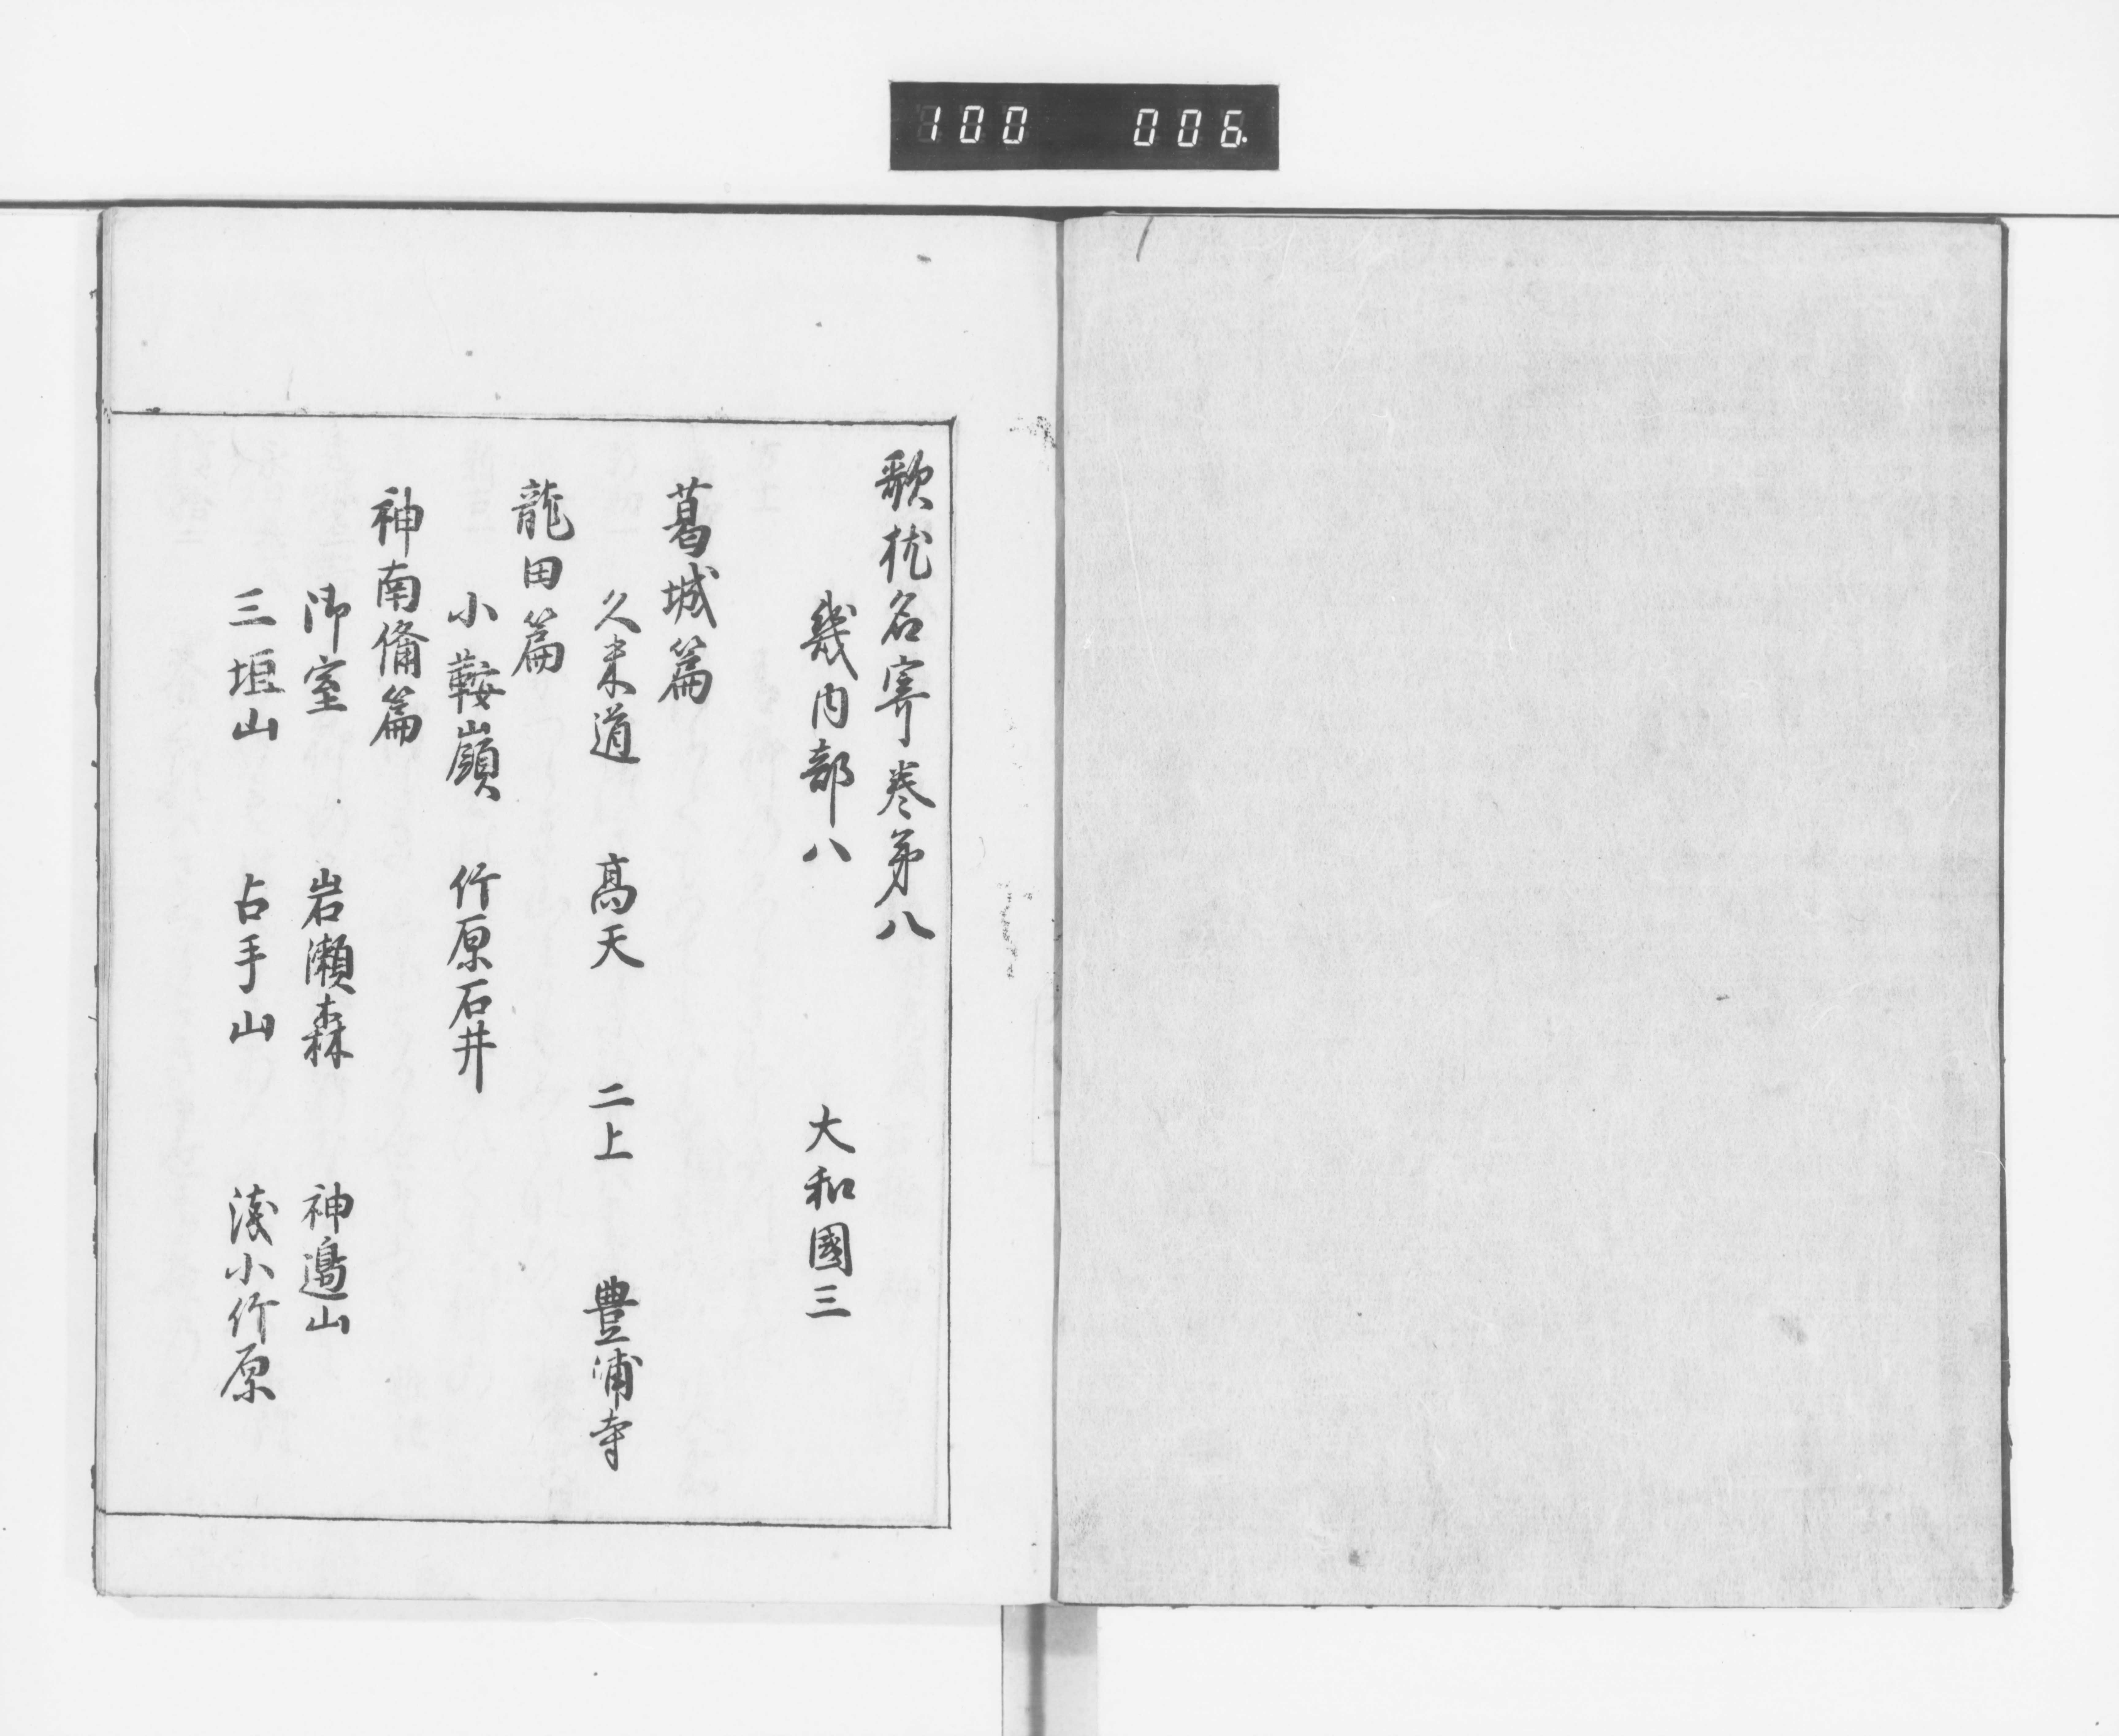 100 006
歌枕名寄巻第八
幾内部八 大和國三
葛城篇
久米道 髙天 二上 豊浦寺
龍田篇
小鞍嶺 竹原石井
神南備篇
御室 岩瀬森 神邊山
三垣山 占手山 浅小竹原